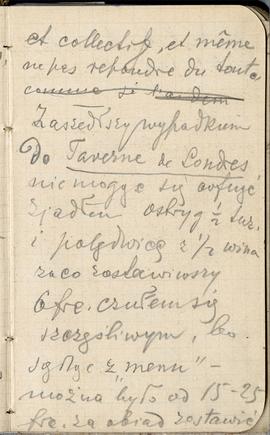 et collectif, et même
ne pas repondre du tout
comme si
Zaszedłszy wypadkiem
Do Taverne de Londres
nie mogąc się cofnąć
zjadłem ostryg ½ tuz.
i polędwicę z ½ wina
za co zostawiwszy
6 frc. czułem się
szczęśliwym, bo
sądząc z „menu" –
można było od 15-25
frc. za obiad zostawić